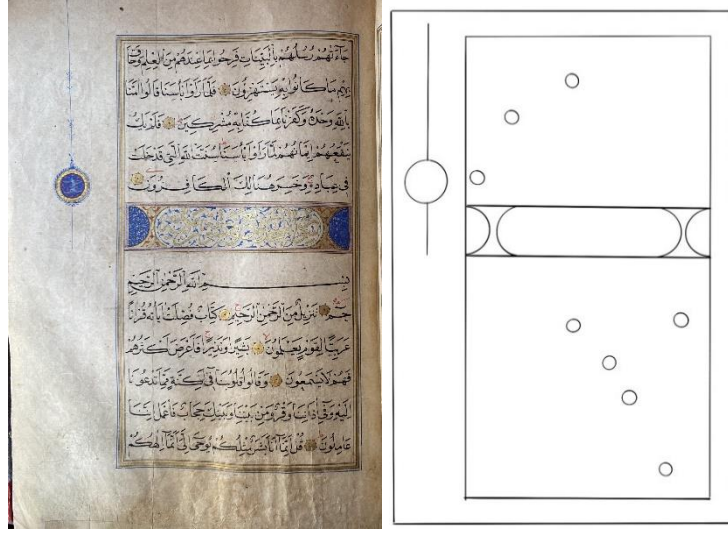 جاءتهم رسلهم بالبينات فرحوا بما عندهم من العلم وحاق
بهم ما كانوا به يستهزؤن فلما رأوا بأسنا قالوا آمنا
بالله وحده وكفرنا بما كنا به مشركين فلم يك
ينفعهم إيمانهم لما رأوا بأسنا سنت الله التي قد خلت
في عباده وخسر هنالك الكافرون
بسم الله الرحمن الرحيم
حم تنزيل من الرحمن الرحيم كتاب فصلت آياته قرآنا
عربيا لقوم يعلمون بشيرا ونذيرا فأعرض أكثرهم
فهم لا يسمعون وقالوا قلوبنا في أكنة مما تدعونا
إليه وفي آذاننا وقر ومن بيننا وبينك حجاب فاعمل إننا
عاملون قل إنما أنا بشر مثلكم يوحى إلي أنما إلهكم